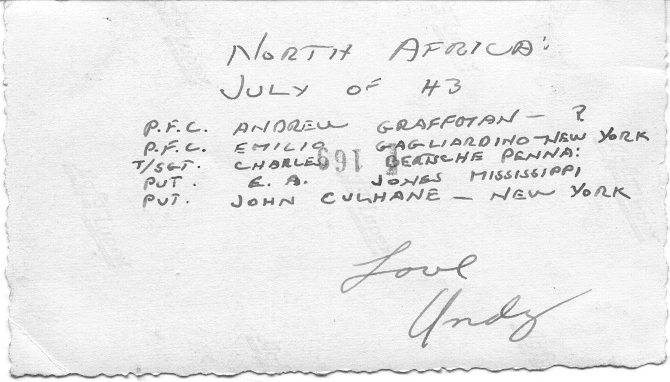 NORTH AFRICA:
JULY OF 43
P.F.C. ANDREW GRAFFOMAN - ?
P.F.C. EMILIO GAGLIARDINO - NEW YORK
T/SGT. CHARLES BERSCHE PENNA:
PVT. E. A. JONES MISSISSIPPI
PVT. JOHN CULHANE - NEW YORK
Love
Andy